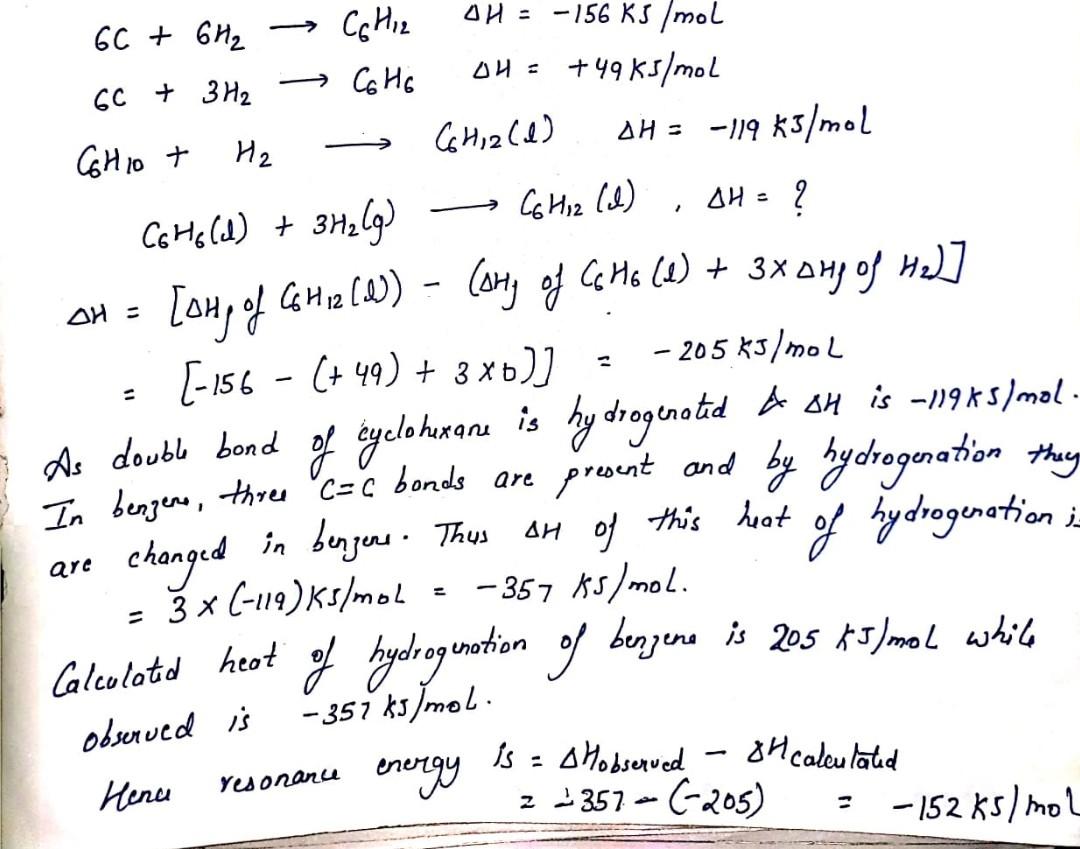 6C + 6H₂ → C₆H₁₂ ΔH = -156 KJ/mol
6C + 3H₂ → C₆H₆ ΔH = +49 KJ/mol
C₆H₁₀ + H₂ → C₆H₁₂(l) ΔH = -119 KJ/mol
C₆H₆(l) + 3H₂(g) → C₆H₁₂(l), ΔH = ?
ΔH = [ΔHf of C₆H₁₂(l)) - (ΔHf of C₆H₆(l) + 3×ΔHf of H₂)]
= [-156 - (+49) + 3×0)] = -205 KJ/mol
As double bond of cyclohexane is hydrogenated & ΔH is -119KJ/mol.
In benzene, three C=C bonds are present and by hydrogenation they
are changed in benzene. Thus ΔH of this heat of hydrogenation is
= 3×(-119)KJ/mol = -357 KJ/mol.
Calculated heat of hydrogenation of benzene is 205 KJ/mol while
observed is -357 KJ/mol.
Hence resonance energy is = ΔHobserved - ΔHcalculated
= -357 - (-205) = -152 KJ/mol